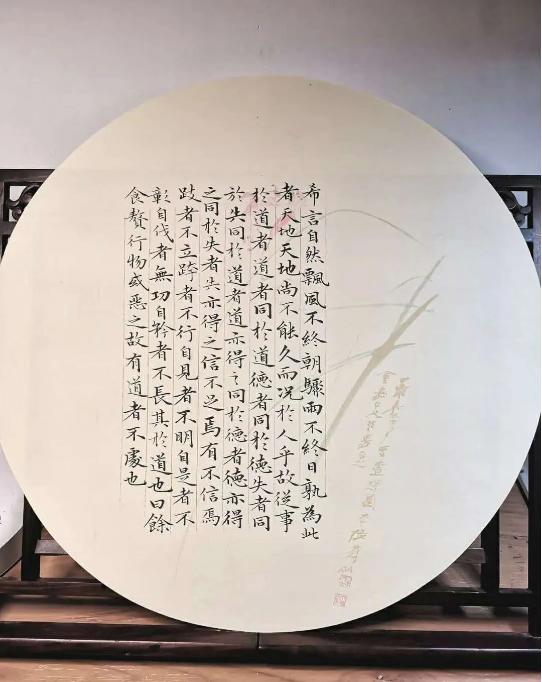 希言自然飄風不終朝驟雨不終日孰為此
者天地天地尚不能久而況於人乎故從事
於道者道者同於道德者同於德失者同
於失同於道者道亦得之同於德者德亦得
之同於失者失亦得之信不足焉有不信焉
跂者不立跨者不行自見者不明自是者不
彰自伐者無功自矜者不長其於道也曰餘
食贅行物或惡之故有道者不處也